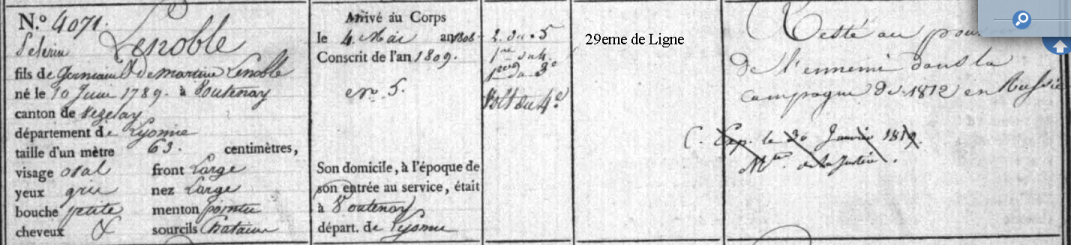 N.° 4071.
Lenoble
fils de Germain & de Martine Lenoble
né le 10 Juin 1789. à Voutenay
canton de Vezelay
département de Lyonne
taille d'un mètre 63. centimètres,
visage oval front Large
yeux gris nez Large
bouche petite menton pointu
cheveux sourcils Chatains
Arrivé au Corps
le 4 Mai an 1808
Conscrit de l'an 1809.
Son domicile, à l'époque de
son entrée au service, était
à Voutenay
départ. de Lyonne
2. du 5
Volt. du 4e
29eme de Ligne
Resté au
de l'ennemi dans la
campagne de 1812 en Russie
C. Exp. le 30 Janvier